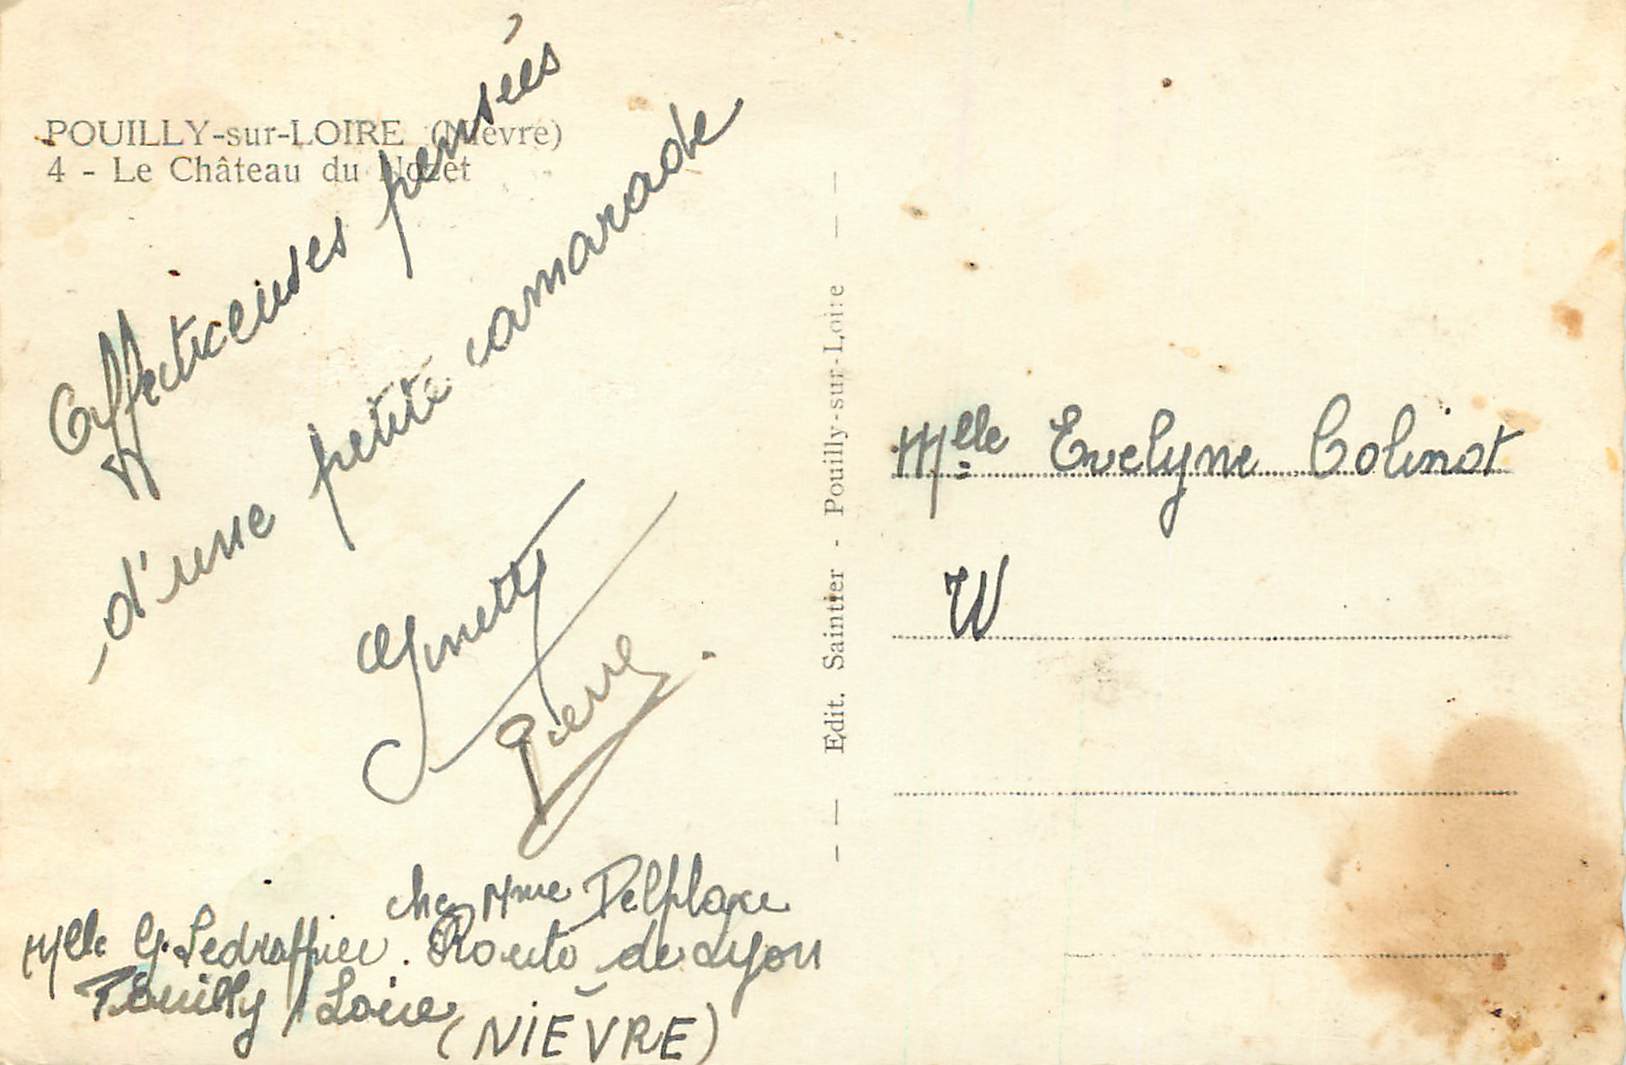 POUILLY-sur-LOIRE (Nièvre)
4 - Le Château du Nozet
Affectueuses pensées
d'une petite camarade
Ginette
Pierre.
chez Mme Delplace
Mlle G. Ledraffier. Route de Lyon
Pouilly / Loire
(NIÈVRE)
Edit. Saintier - Pouilly-sur-Loire
Melle Evelyne Colinot
W